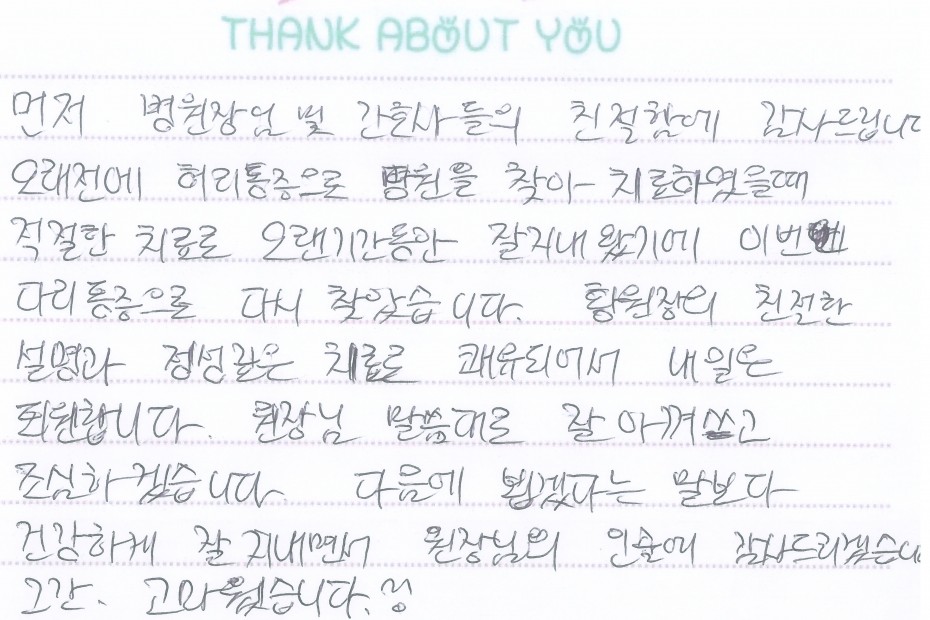 THANK ABOUT YOU
먼저 병원장님 및 간호사들의 친절함에 감사드립니다
오래전에 허리통증으로 병원을 찾아 치료하였을때
적절한 치료로 오랜기간동안 잘지내 왔기에 이번에
다리통증으로 다시 찾았습니다. 황원장의 친절한
설명과 정성같은 치료로 쾌유되어서 내일은
퇴원합니다. 원장님 말씀대로 잘 아껴쓰고
조심하겠습니다. 다음에 뵙겠다는 말보다
건강하게 잘 지내면서 원장님의 인술에 감사드리겠습니다
그간. 고마웠습니다.